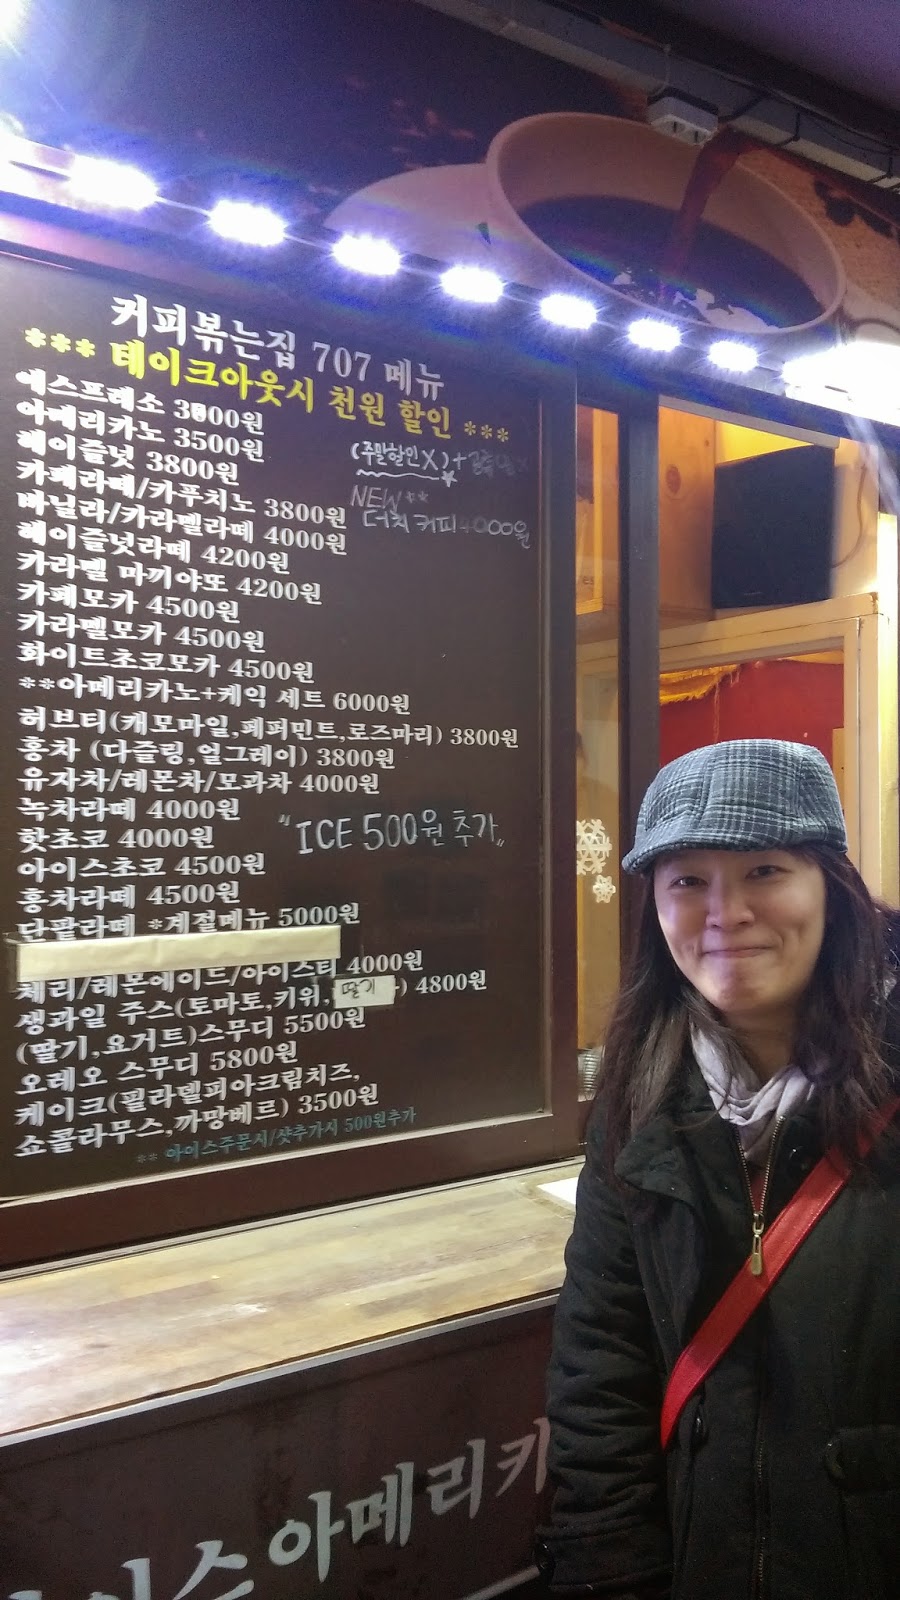 커피볶는집 707 메뉴
*** 테이크아웃시 천원 할인 ***
에스프레소 3000원
아메리카노 3500원
(주말할인X)+
헤이즐넛 3800원
NEW**
카페라떼/카푸치노 3800원
더치 커피 4000원
바닐라/카라멜라떼 4000원
헤이즐넛라떼 4200원
카라멜 마끼야또 4200원
카페모카 4500원
카라멜모카 4500원
화이트초코모카 4500원
**아메리카노+케익 세트 6000원
허브티(캐모마일,페퍼민트,로즈마리) 3800원
홍차 (다즐링,얼그레이) 3800원
유자차/레몬차/모과차 4000원
녹차라떼 4000원
핫초코 4000원
"ICE 500원 추가"
아이스초코 4500원
홍차라떼 4500원
단팥라떼 *계절메뉴 5000원
체리/레몬에이드/아이스티 4000원
생과일 주스(토마토,키위,딸기) 4800원
(딸기,요거트)스무디 5500원
오레오 스무디 5800원
케이크(필라델피아크림치즈,
쇼콜라무스,까망베르) 3500원
** 아이스주문시/샷추가시 500원추가
아이스아메리카